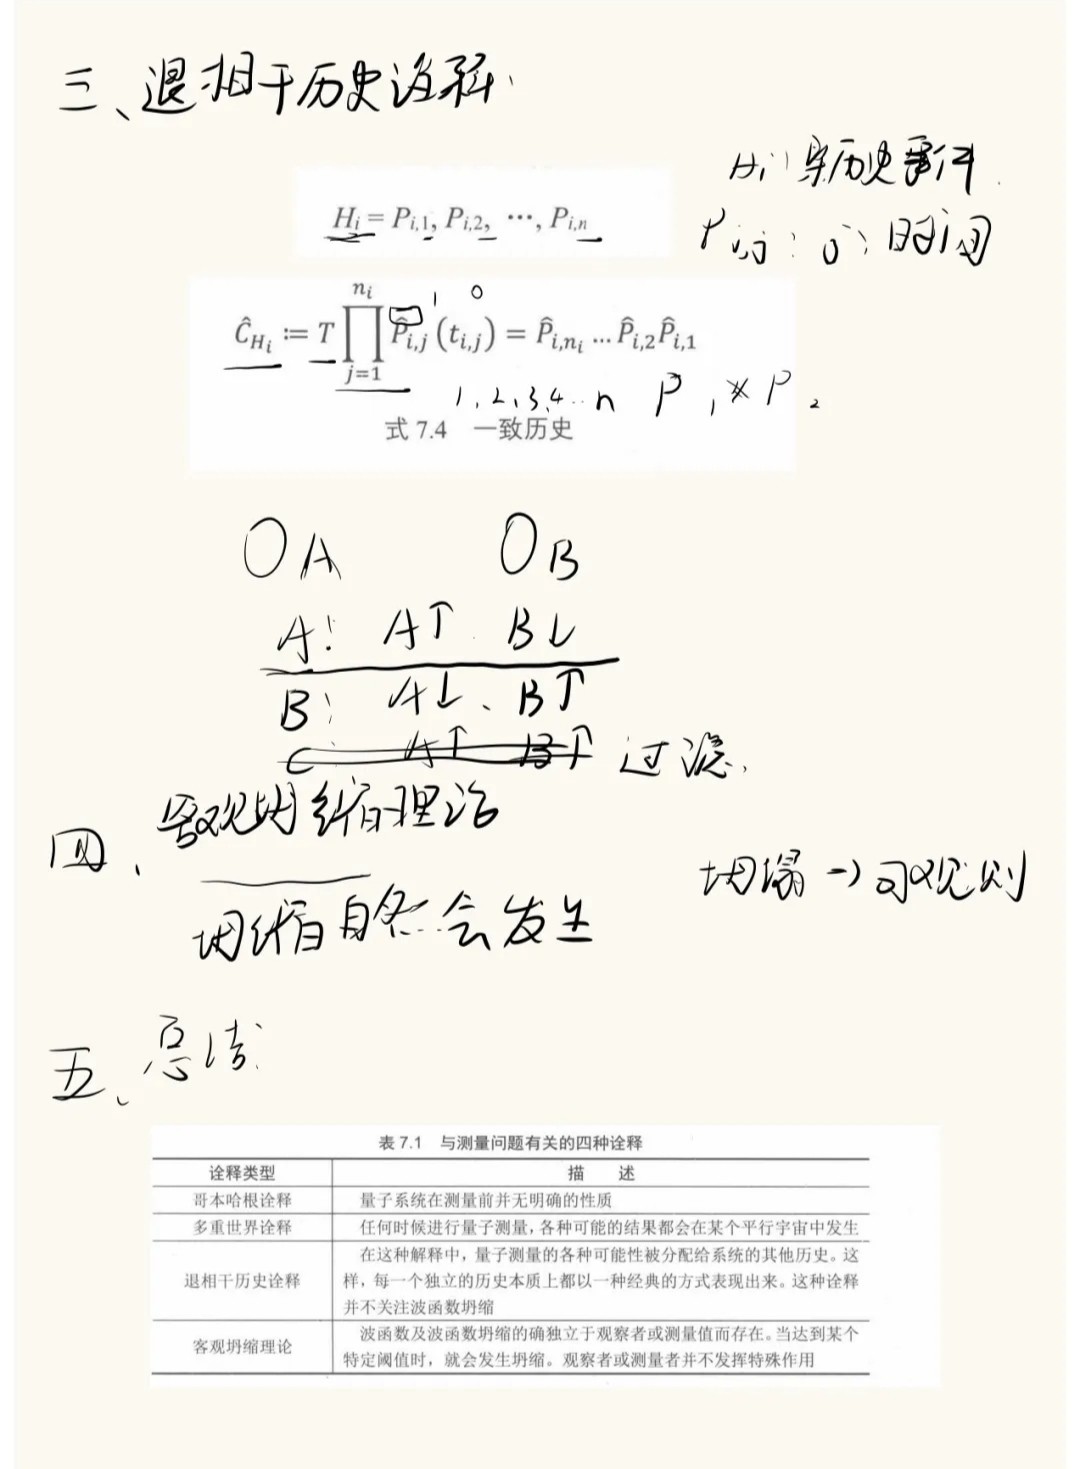 三、退相干历史诠释
H_i：某历史事件
H_i = P_{i,1}, P_{i,2}, ⋯, P_{i,n}
P_{i,j}：j：时间
Ĉ_{H_i} := T∏_{j=1}^{n_i} P̂_{i,j}(t_{i,j}) = P̂_{i,n_i} … P̂_{i,2}P̂_{i,1}
1 0
1，2，3，4…n P₁ × P₂
式 7.4 一致历史
A B
A： A↑ B↓
B： A↓、B↑
C A↑ B↑ 过滤.
四、客观坍缩理论
坍缩→可观测
坍缩自然会发生
五、总结
表 7.1 与测量问题有关的四种诠释
诠释类型 描 述
哥本哈根诠释 量子系统在测量前并无明确的性质
多重世界诠释 任何时候进行量子测量,各种可能的结果都会在某个平行宇宙中发生
在这种解释中,量子测量的各种可能性被分配给系统的其他历史。这
退相干历史诠释 样,每一个独立的历史本质上都以一种经典的方式表现出来。这种诠释
并不关注波函数坍缩
波函数及波函数坍缩的确独立于观察者或测量值而存在。当达到某个
客观坍缩理论
特定阈值时，就会发生坍缩。观察者或测量者并不发挥特殊作用